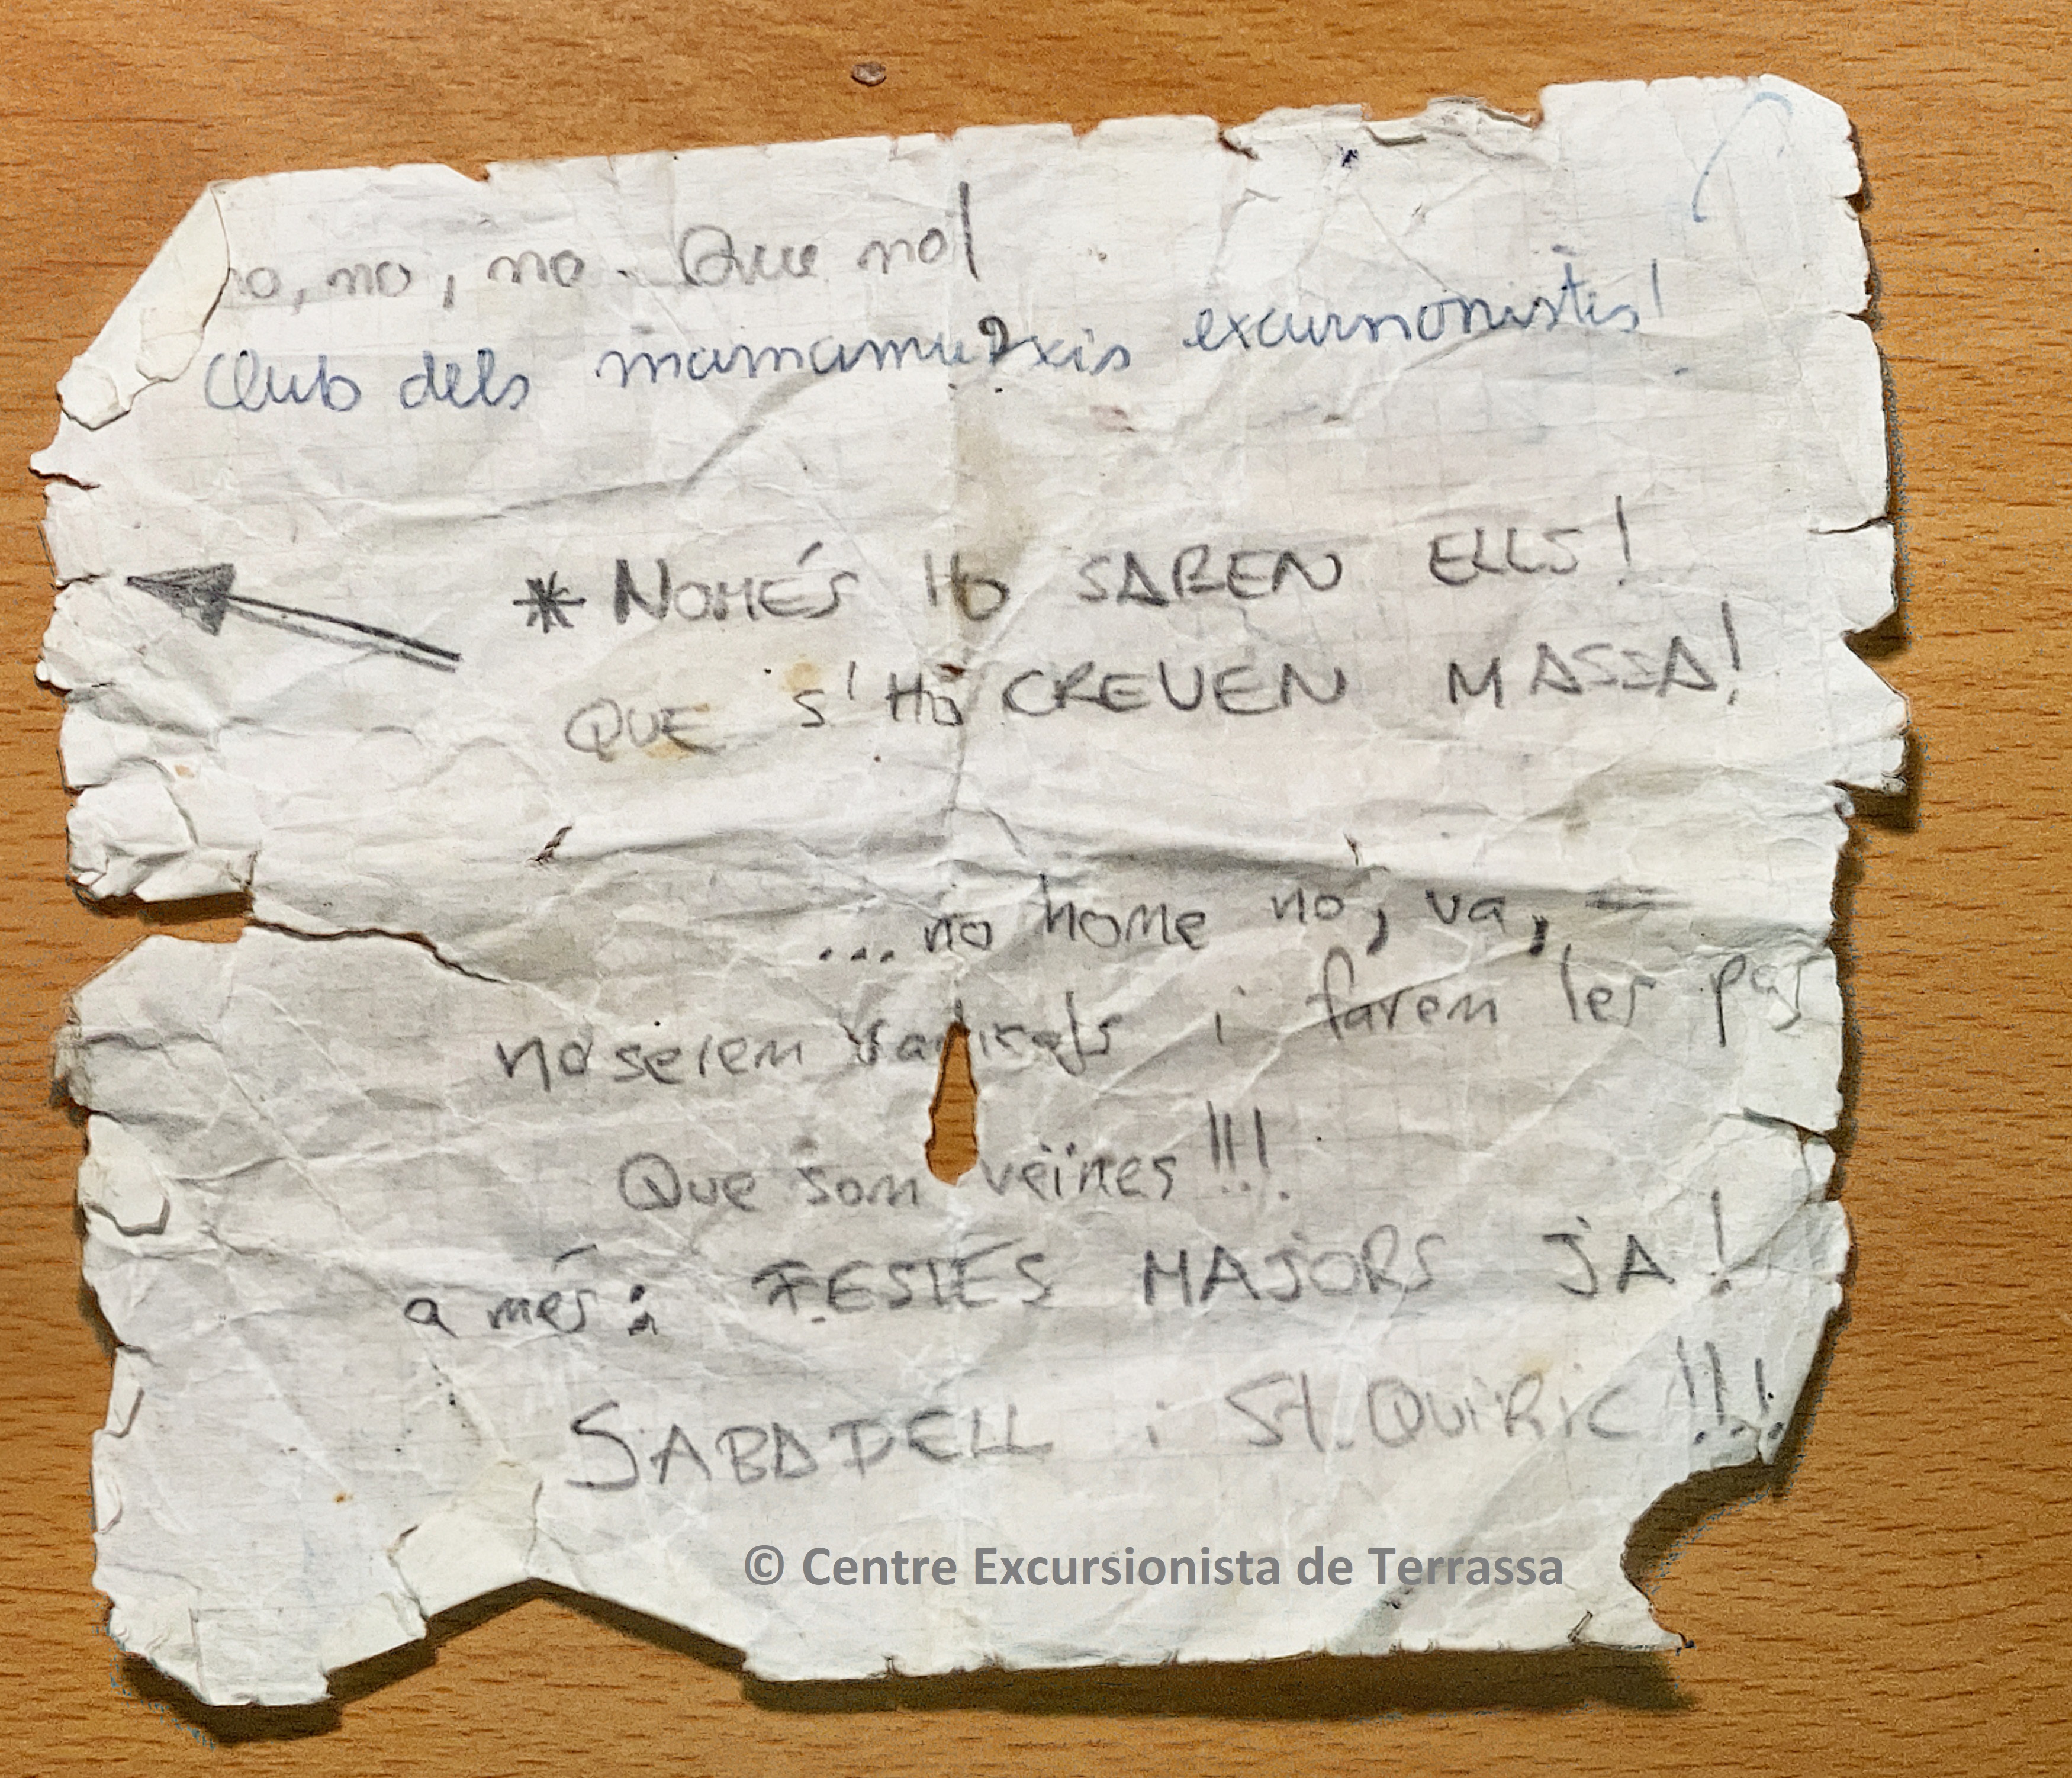 no, no, no. Que no!
Club dels mamamutxis excursionistes!
* NOMÉS HO SABEN ELLS!
QUE S'HO CREUEN MASSA!
...no home no, va,
no serem radicals i farem les paus
Que som veïnes!!!
a més: FESTES MAJORS JA!
SABADELL i St. QUIRIC!!!
© Centre Excursionista de Terrassa